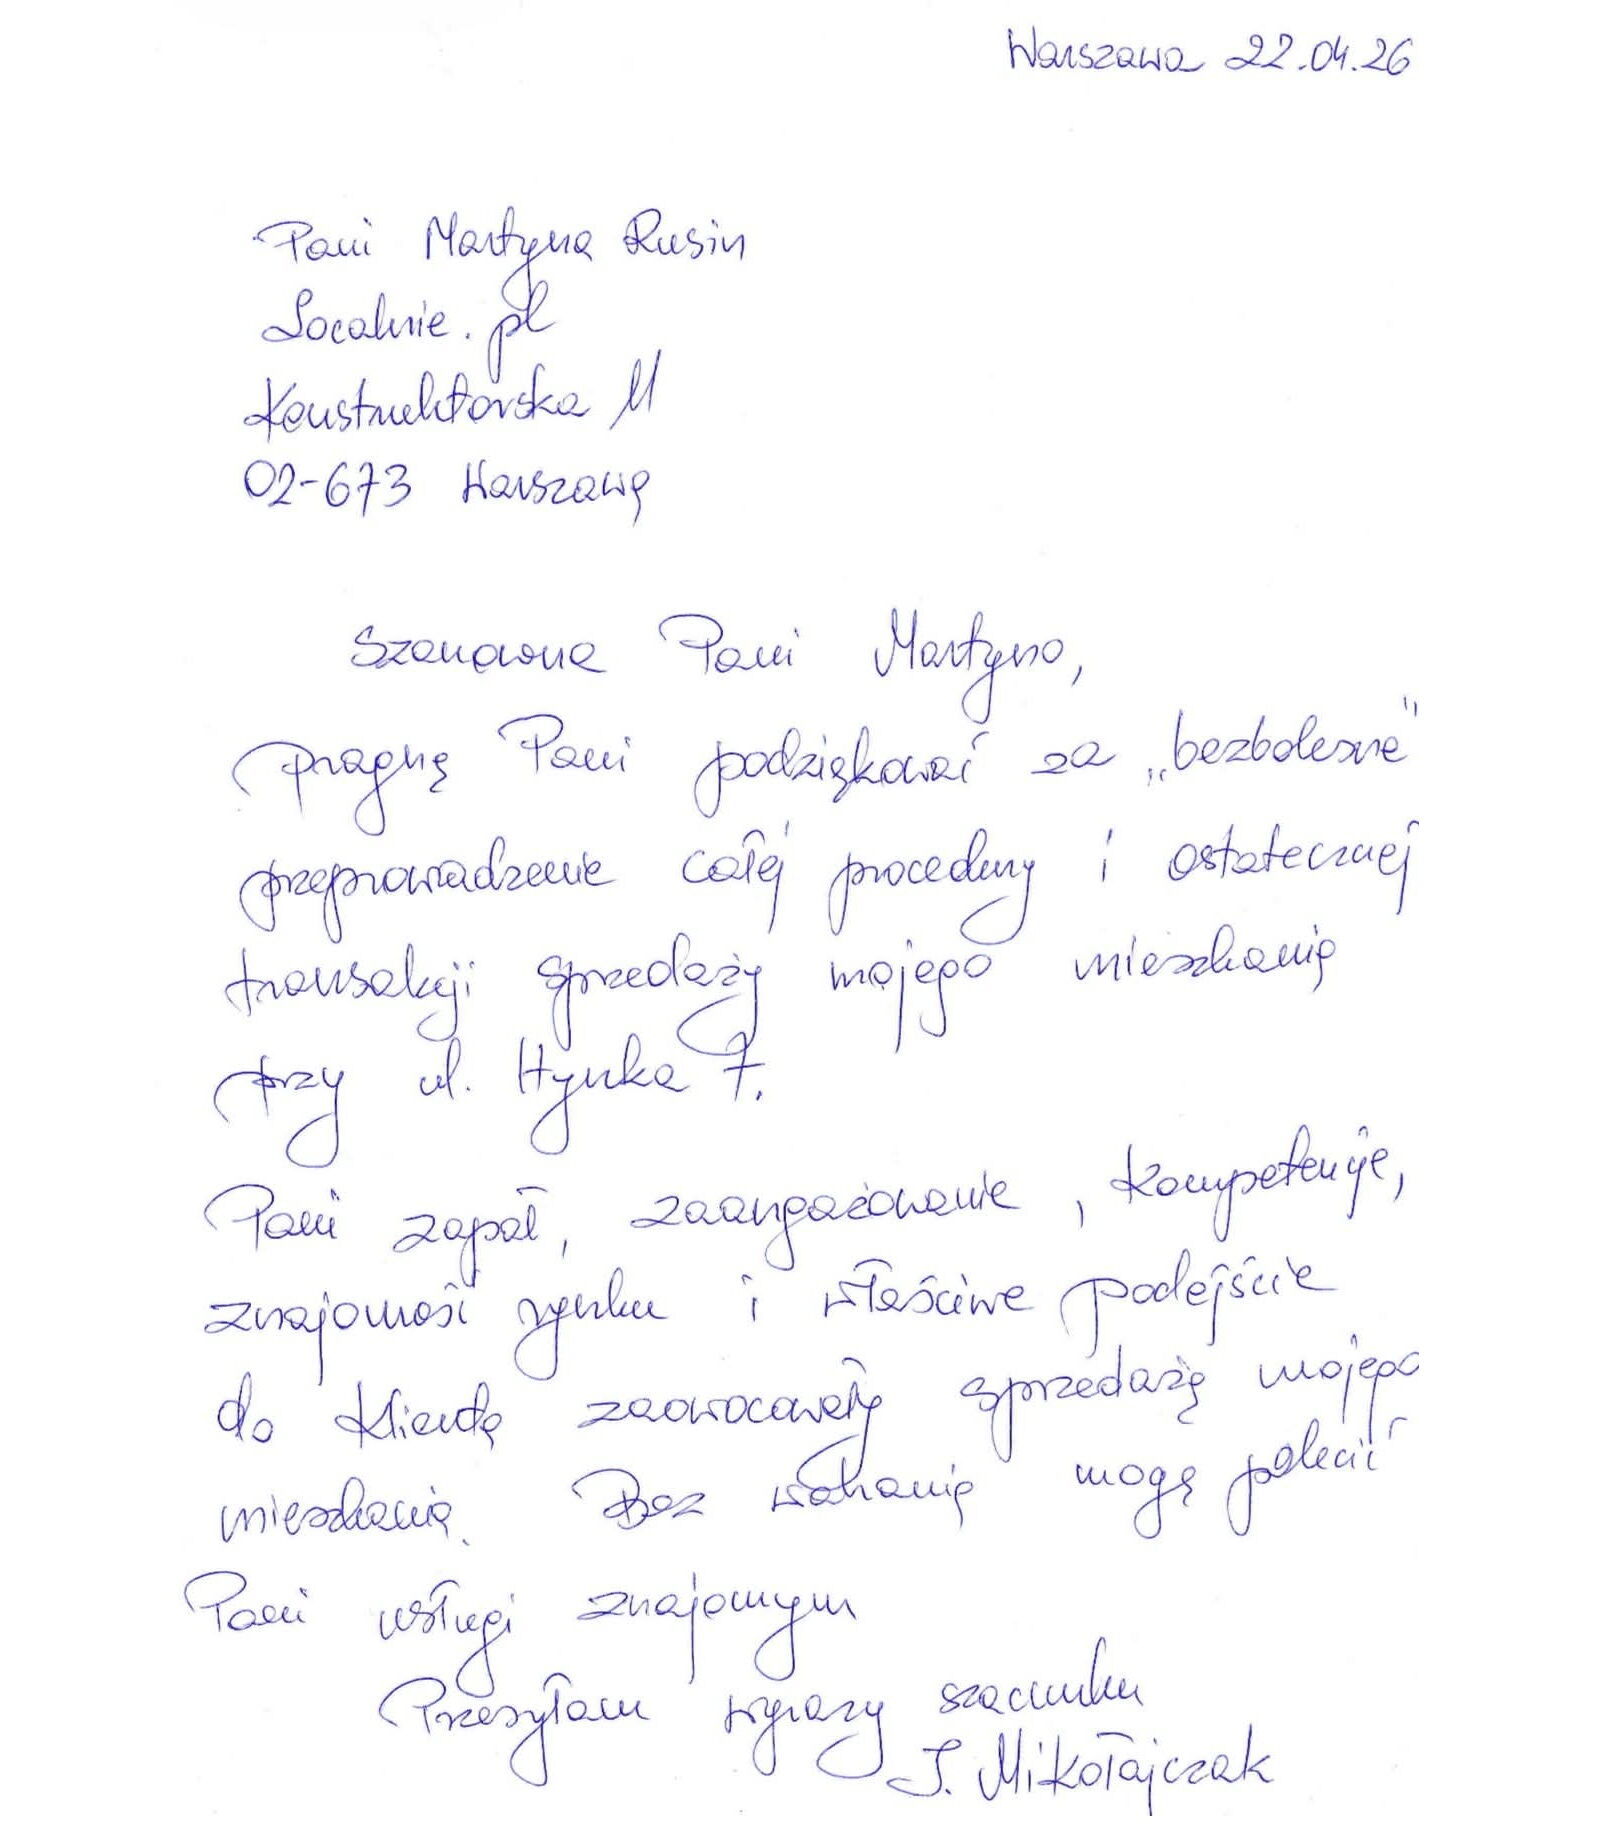 Warszawa 22.04.26
Pani Martyna Rusin
Localnie.pl
Konstruktorska 11
02-673 Warszawa
Szanowna Pani Martyno,
pragnę Pani podziękować za „bezbolesne”
przeprowadzenie całej procedury i ostatecznej
transakcji sprzedaży mojego mieszkania
przy ul. Hynka 7.
Pani zapał, zaangażowanie, kompetencje,
znajomość rynku i właściwe podejście
do klienta zaowocowały sprzedażą mojego
mieszkania. Bez wahania mogę polecić
Pani usługi znajomym
Przesyłam wyrazy szacunku
J. Mikołajczak